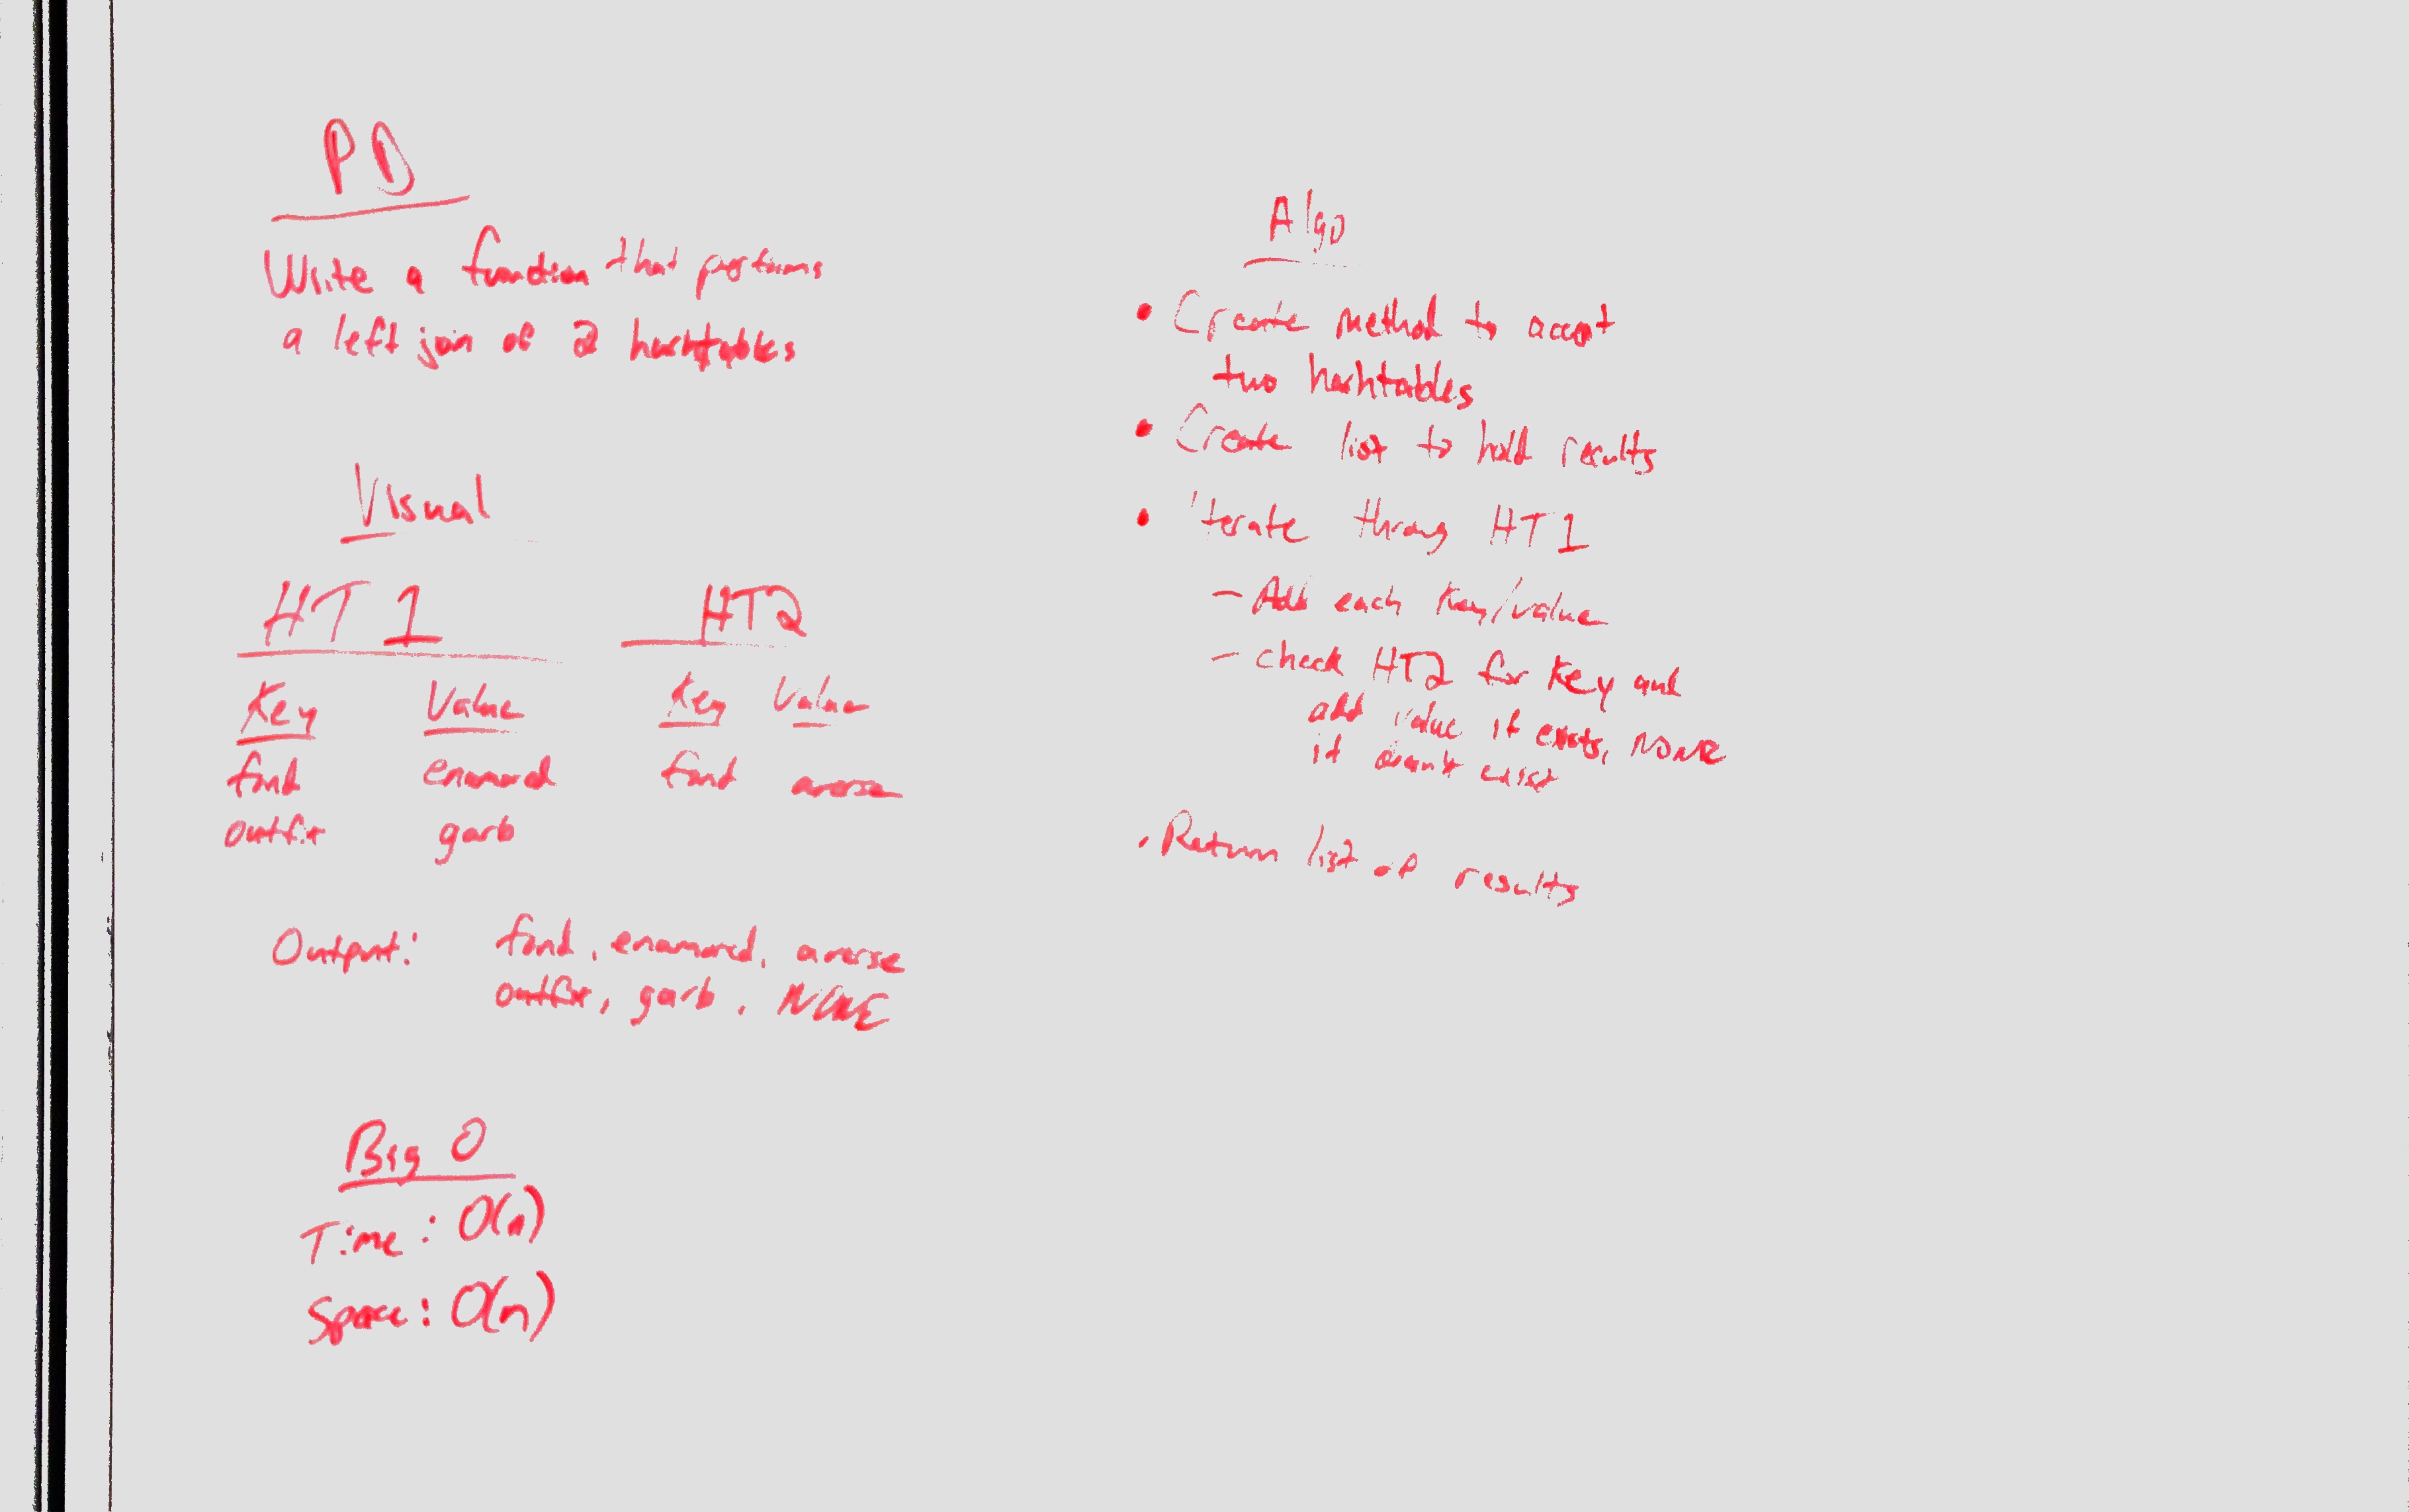 PD
Write a function that performs
a left join of 2 hashtables
Visual
HT 1 HT2
Key Value Key Value
fond enamored fond averse
outfit garb
Output: fond, enamored, averse
outfit, garb, NONE
Big O
Time: O(n)
Space: O(n)
Algo
• Create method to accept
two hashtables
• Create list to hold results
• iterate throug HT1
- Add each key/value
- check HT2 for key and
add value if exists, NONE
if doesn't exist
• Return list of results